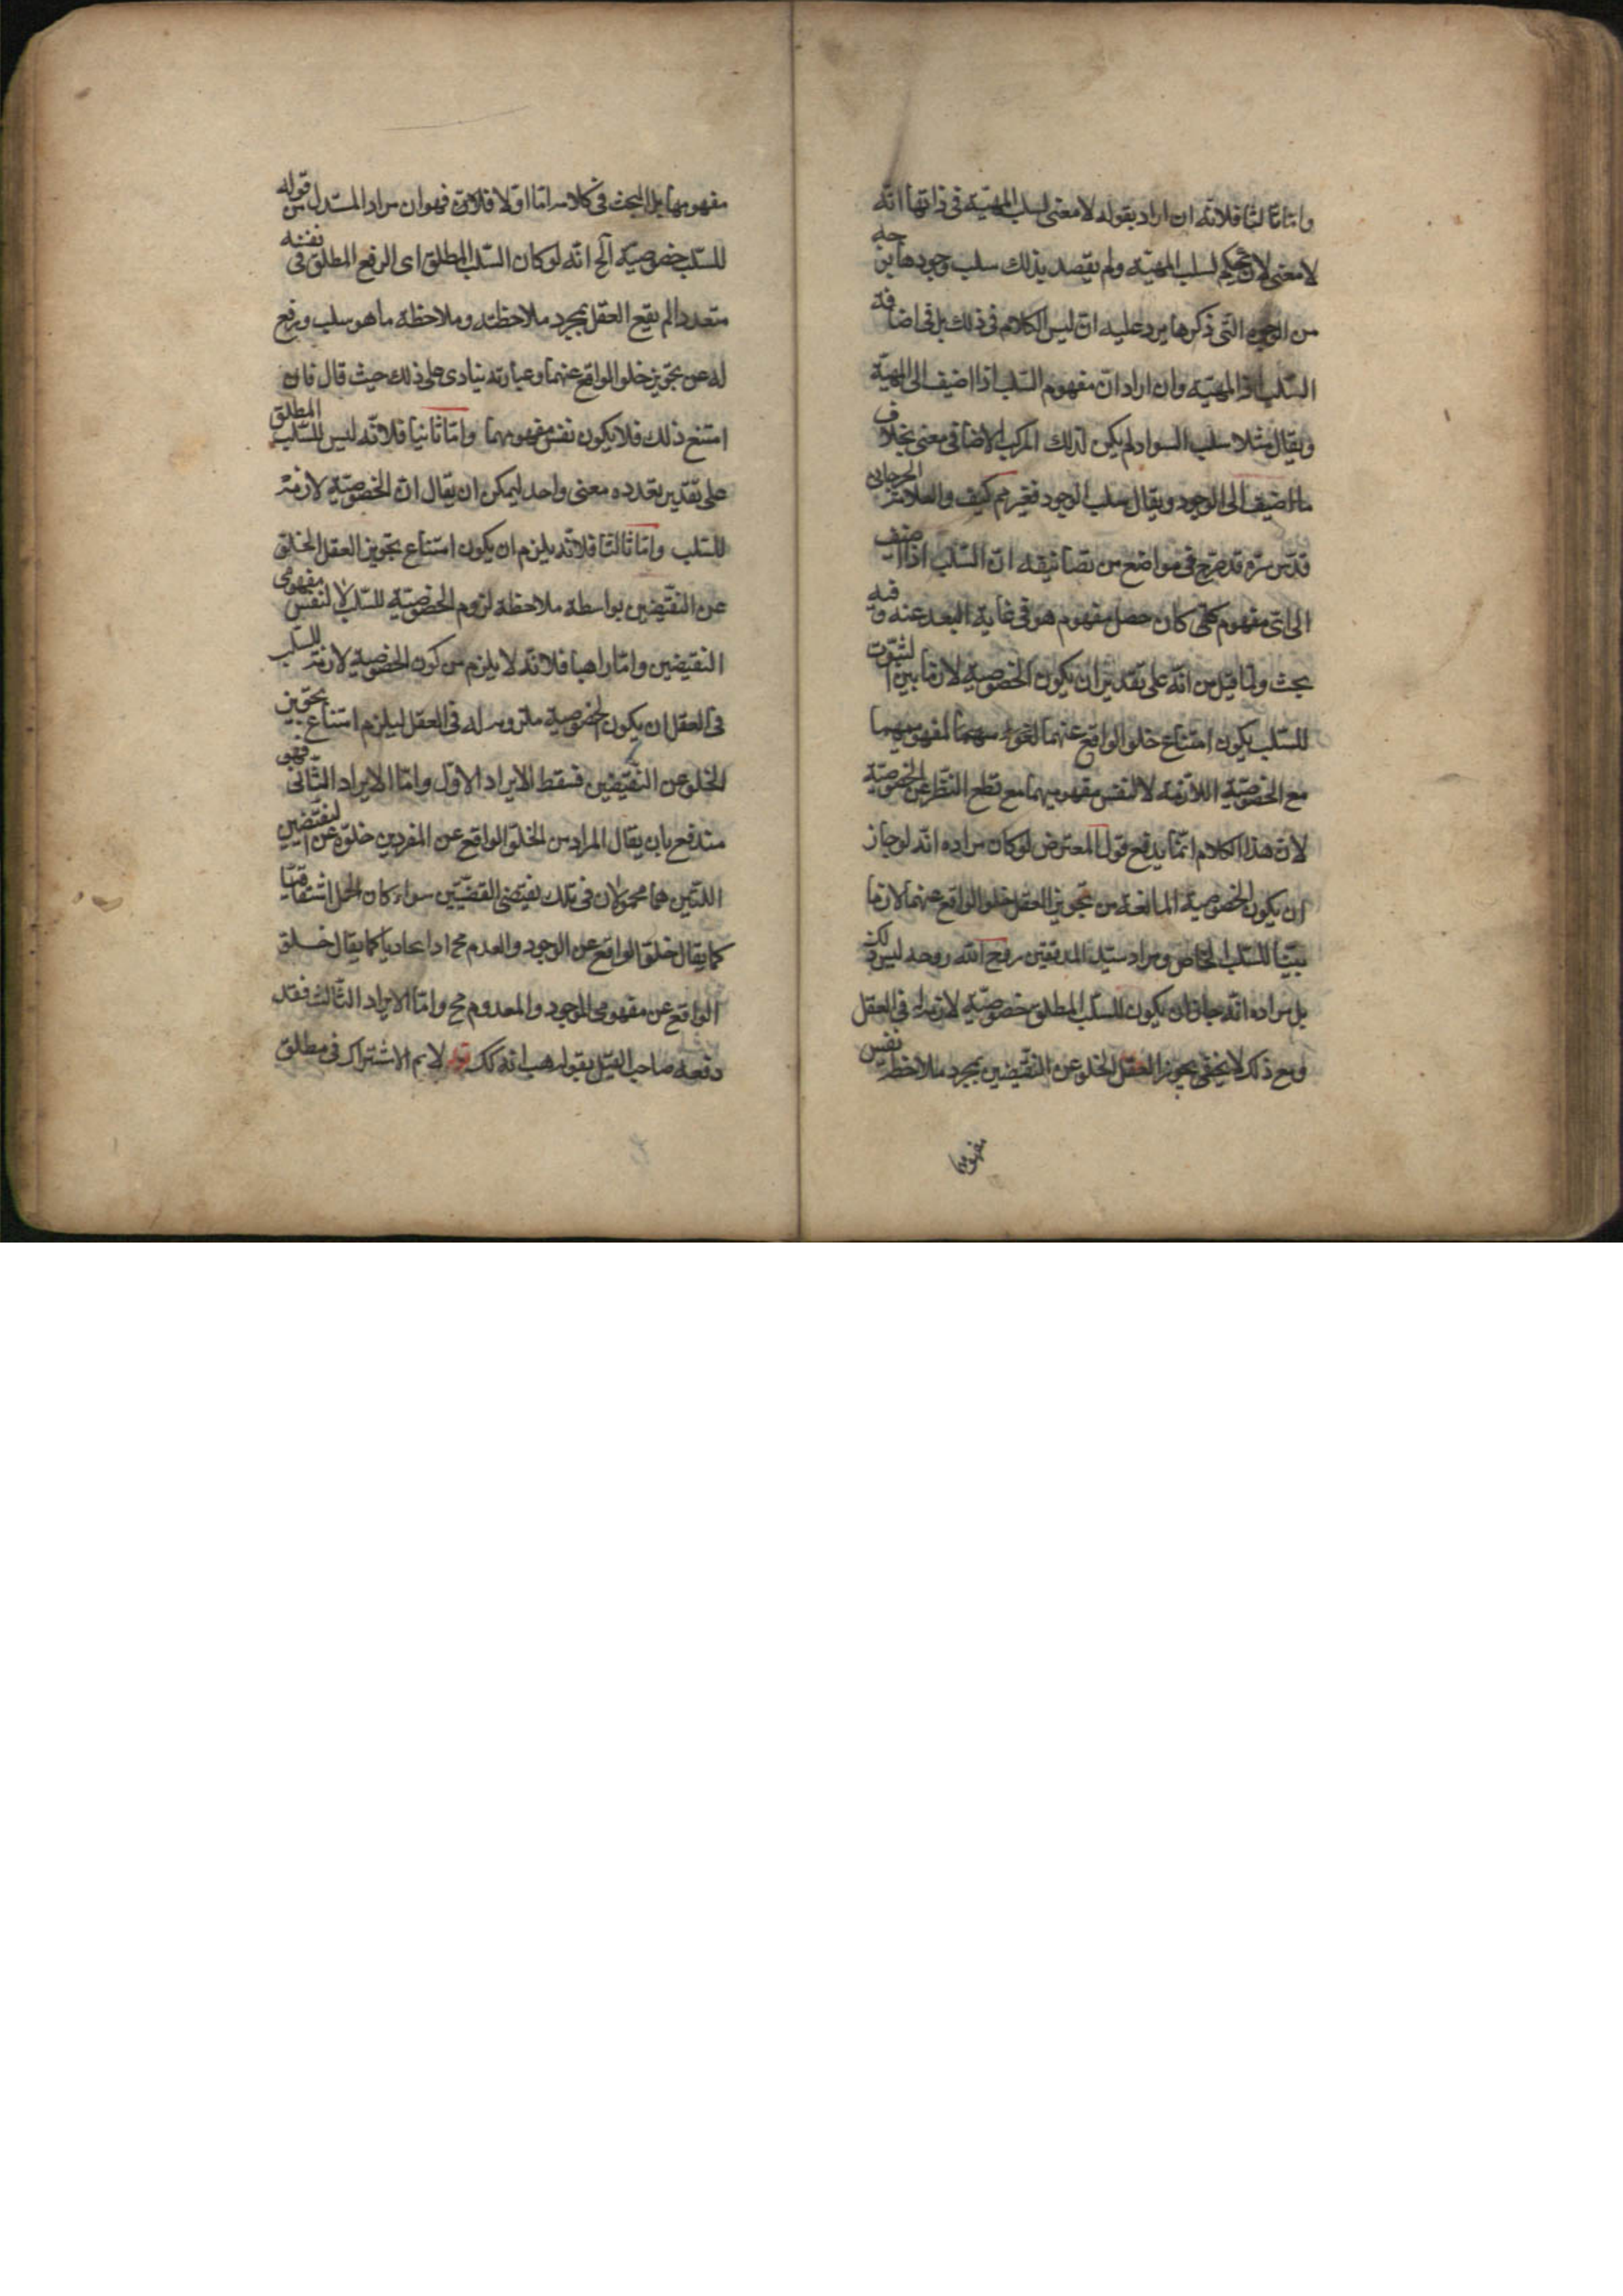 واما ثالثا فلانه ان اراد بقوله لا معنى لسلب المهية فى ذاتها انه
لا معنى لان يحكم لسلب المهية ولم يقصد بذلك سلب وجودها من جهة
من الوجوه التى ذكرها يرد عليه ان ليس الكلام فى ذلك بل فى اضافة
السلب الى المهية وان اراد ان مفهوم السلب اذا اضيف الى المهية
ويقال مثلا سلب السواد لم يكن لذلك المركب الاضافى معنى بخلاف
ما اضيف الى الوجود ويقال سلب الوجود فغير مم كيف والعلامة الجرجانى
قدس سره قد صرح فى مواضع من تصانيفه ان السلب اذا اضيف
الى اى مفهوم كلى كان حصل مفهوم هو فى غاية البعد عنه وفيه
بحث ولما قيل من انه على تقدير ان يكون الخصوصية لازما بين الثبوت
للسلب يكون امتناع خلو الواقع عنهما لمفهوميهما
مع الخصوصية اللازمة لا لنفس مفهوميهما مع قطع النظر عن الخصوصية
لان هذا الكلام انما يدفع قول المعترض لو كان مراده انه لو جاز
ان يكون الخصوصية المانعة من تجويز العقل خلو الواقع عنهما لازما
بينا للسلب الخاص ومراد سيد المدققين روح الله روحه ليس ذلك
بل مراده انه جاز ان يكون للسلب المطلق خصوصية لازمة له فى العقل
ومع ذلك لا يجوز العقل الخلو عن النقيضين بمجرد ملاحظة نفس
مفهومهما
مفهومها بل البحث فى كلامه اما اولا فلان فهو ان مراد المستدل من قوله
للسلب خصوصية آلخ انه لو كان السلب المطلق اى الرفع المطلق فى نفسه
متعددا لم يقع العقل بمجرد ملاحظته وملاحظة ما هو سلب ورفع
له عن تجويز خلو الواقع عنهما وعبارته ينادى على ذلك حيث قال فان
امتنع ذلك فلا يكون نفس مفهومهما واما ثانيا فلانه ليس للسلب المطلق
على تقدير تعدده معنى واحد ليمكن ان يقال ان الخصوصية لازمة
للسلب واما ثالثا فلانه يلزم ان يكون امتناع تجويز العقل الخلو
عن النقيضين بواسطة ملاحظة لزوم الخصوصية للسلب لا لنفس مفهومى
النقيضين واما رابعا فلانه لا يلزم من كون الخصوصية لازمة للسلب
فى العقل ان يكون الخصوصية ملزومة له فى العقل ليلزم امتناع تجويز
الخلو عن النقيضين فسقط الايراد الاول واما الايراد الثانى فهو
مندفع بان يقال المراد من الخلو الواقع عن المفردين خلوه عن النقيضين
اللذين هما محمولان فى تلك نقيضى القضيتين سواء كان الحمل اشتقاقيا
كما يقال خلو الواقع عن الوجود والعدم مح كما يقال خلو
الواقع عن مفهومى الموجود والمعدوم مح واما الايراد الثالث فقد
دفعه صاحب القيل بقوله هب انه كك قوله لا نم الاشتراك فى مطلق